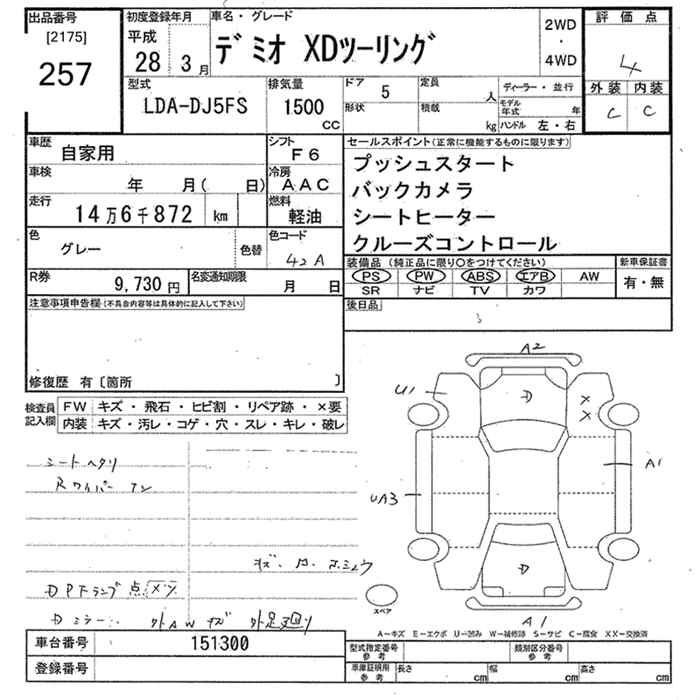 出品番号
[2175]
257
初度登録年月
平成
28 3月
車名・グレード
デミオ XDツーリング
2WD
・
4WD
評価点
4
外装 内装
C C
型式
LDA-DJ5FS
排気量
1500
CC
ドア 5
形状
定員 人
積載 kg
ディーラー・並行
モデル年式 年
ハンドル 左・右
車歴
自家用
シフト
F6
車検
年 月( 日)
冷房
AAC
走行
14万6千872 km
燃料
軽油
色
グレー
色替
色コード
42A
R券
9,730円
名変通知期限
月 日
セールスポイント(正常に機能するものに限ります)
プッシュスタート
バックカメラ
シートヒーター
クルーズコントロール
装備品(純正品に限り○をつけてください)
PS PW ABS エアB AW
SR ナビ TV カワ
新車保証書
有・無
後日品
注意事項申告欄(不具合内容等は具体的に記入して下さい)
修復歴 有〔箇所 〕
検査員記入欄
FW キズ・飛石・ヒビ割・リペア跡・×要
内装 キズ・汚レ・コゲ・穴・スレ・キレ・破レ
シートヘタリ
Rワイパー
DPFランプ点
Dミラー
外AWキズ
A2
U1
D
×
×
A1
UA3
D
A1
スペア
A−キズ E−エクボ U−凹み W−補修跡 S−サビ C−腐食 XX−交換済
車台番号 151300
登録番号
型式指定番号
参考
類別区分番号
参考
車庫証明用
参考
長さ cm 幅 cm 高さ cm